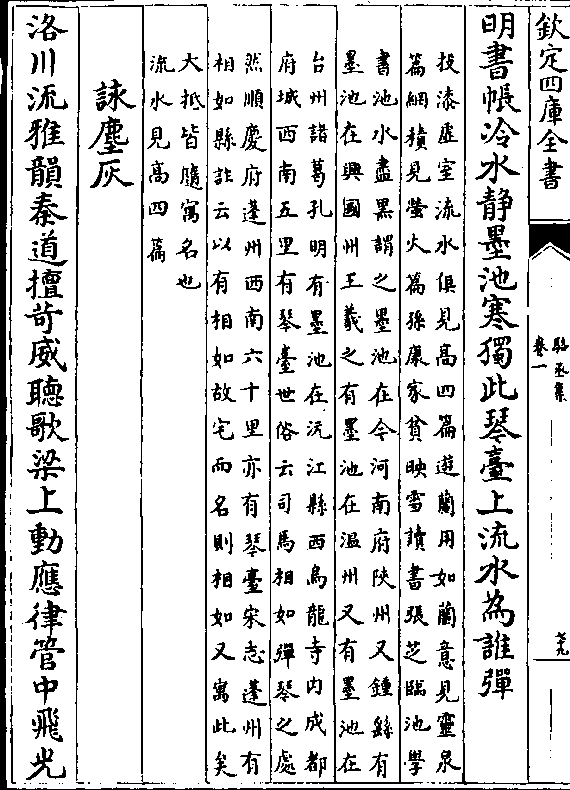 欽定四庫全書
駱丞集
卷一
廿九
明書帳冷水静墨池寒獨此琴臺上流水為誰彈
投漆虛室流水俱見高四篇遊蘭用如蘭意見靈泉
篇網積見螢火篇孫康家貧映雪讀書張芝臨池學
書池水盡黑謂之墨池在今河南府陜州又鍾繇有
墨池在興國州王羲之有墨池在温州又有墨池在
台州諸葛孔明有墨池在沅江縣西烏龍寺内成都
府城西南五里有琴臺世俗云司馬相如彈琴之處
然順慶府蓬州西南六十里亦有琴臺宋志蓬州有
相如縣註云以有相如故宅而名則相如又寓此矣
大抵皆隨寓名也
流水見高四篇
詠塵灰
洛川流雅韻秦道擅苛威聽歌梁上動應律管中飛光